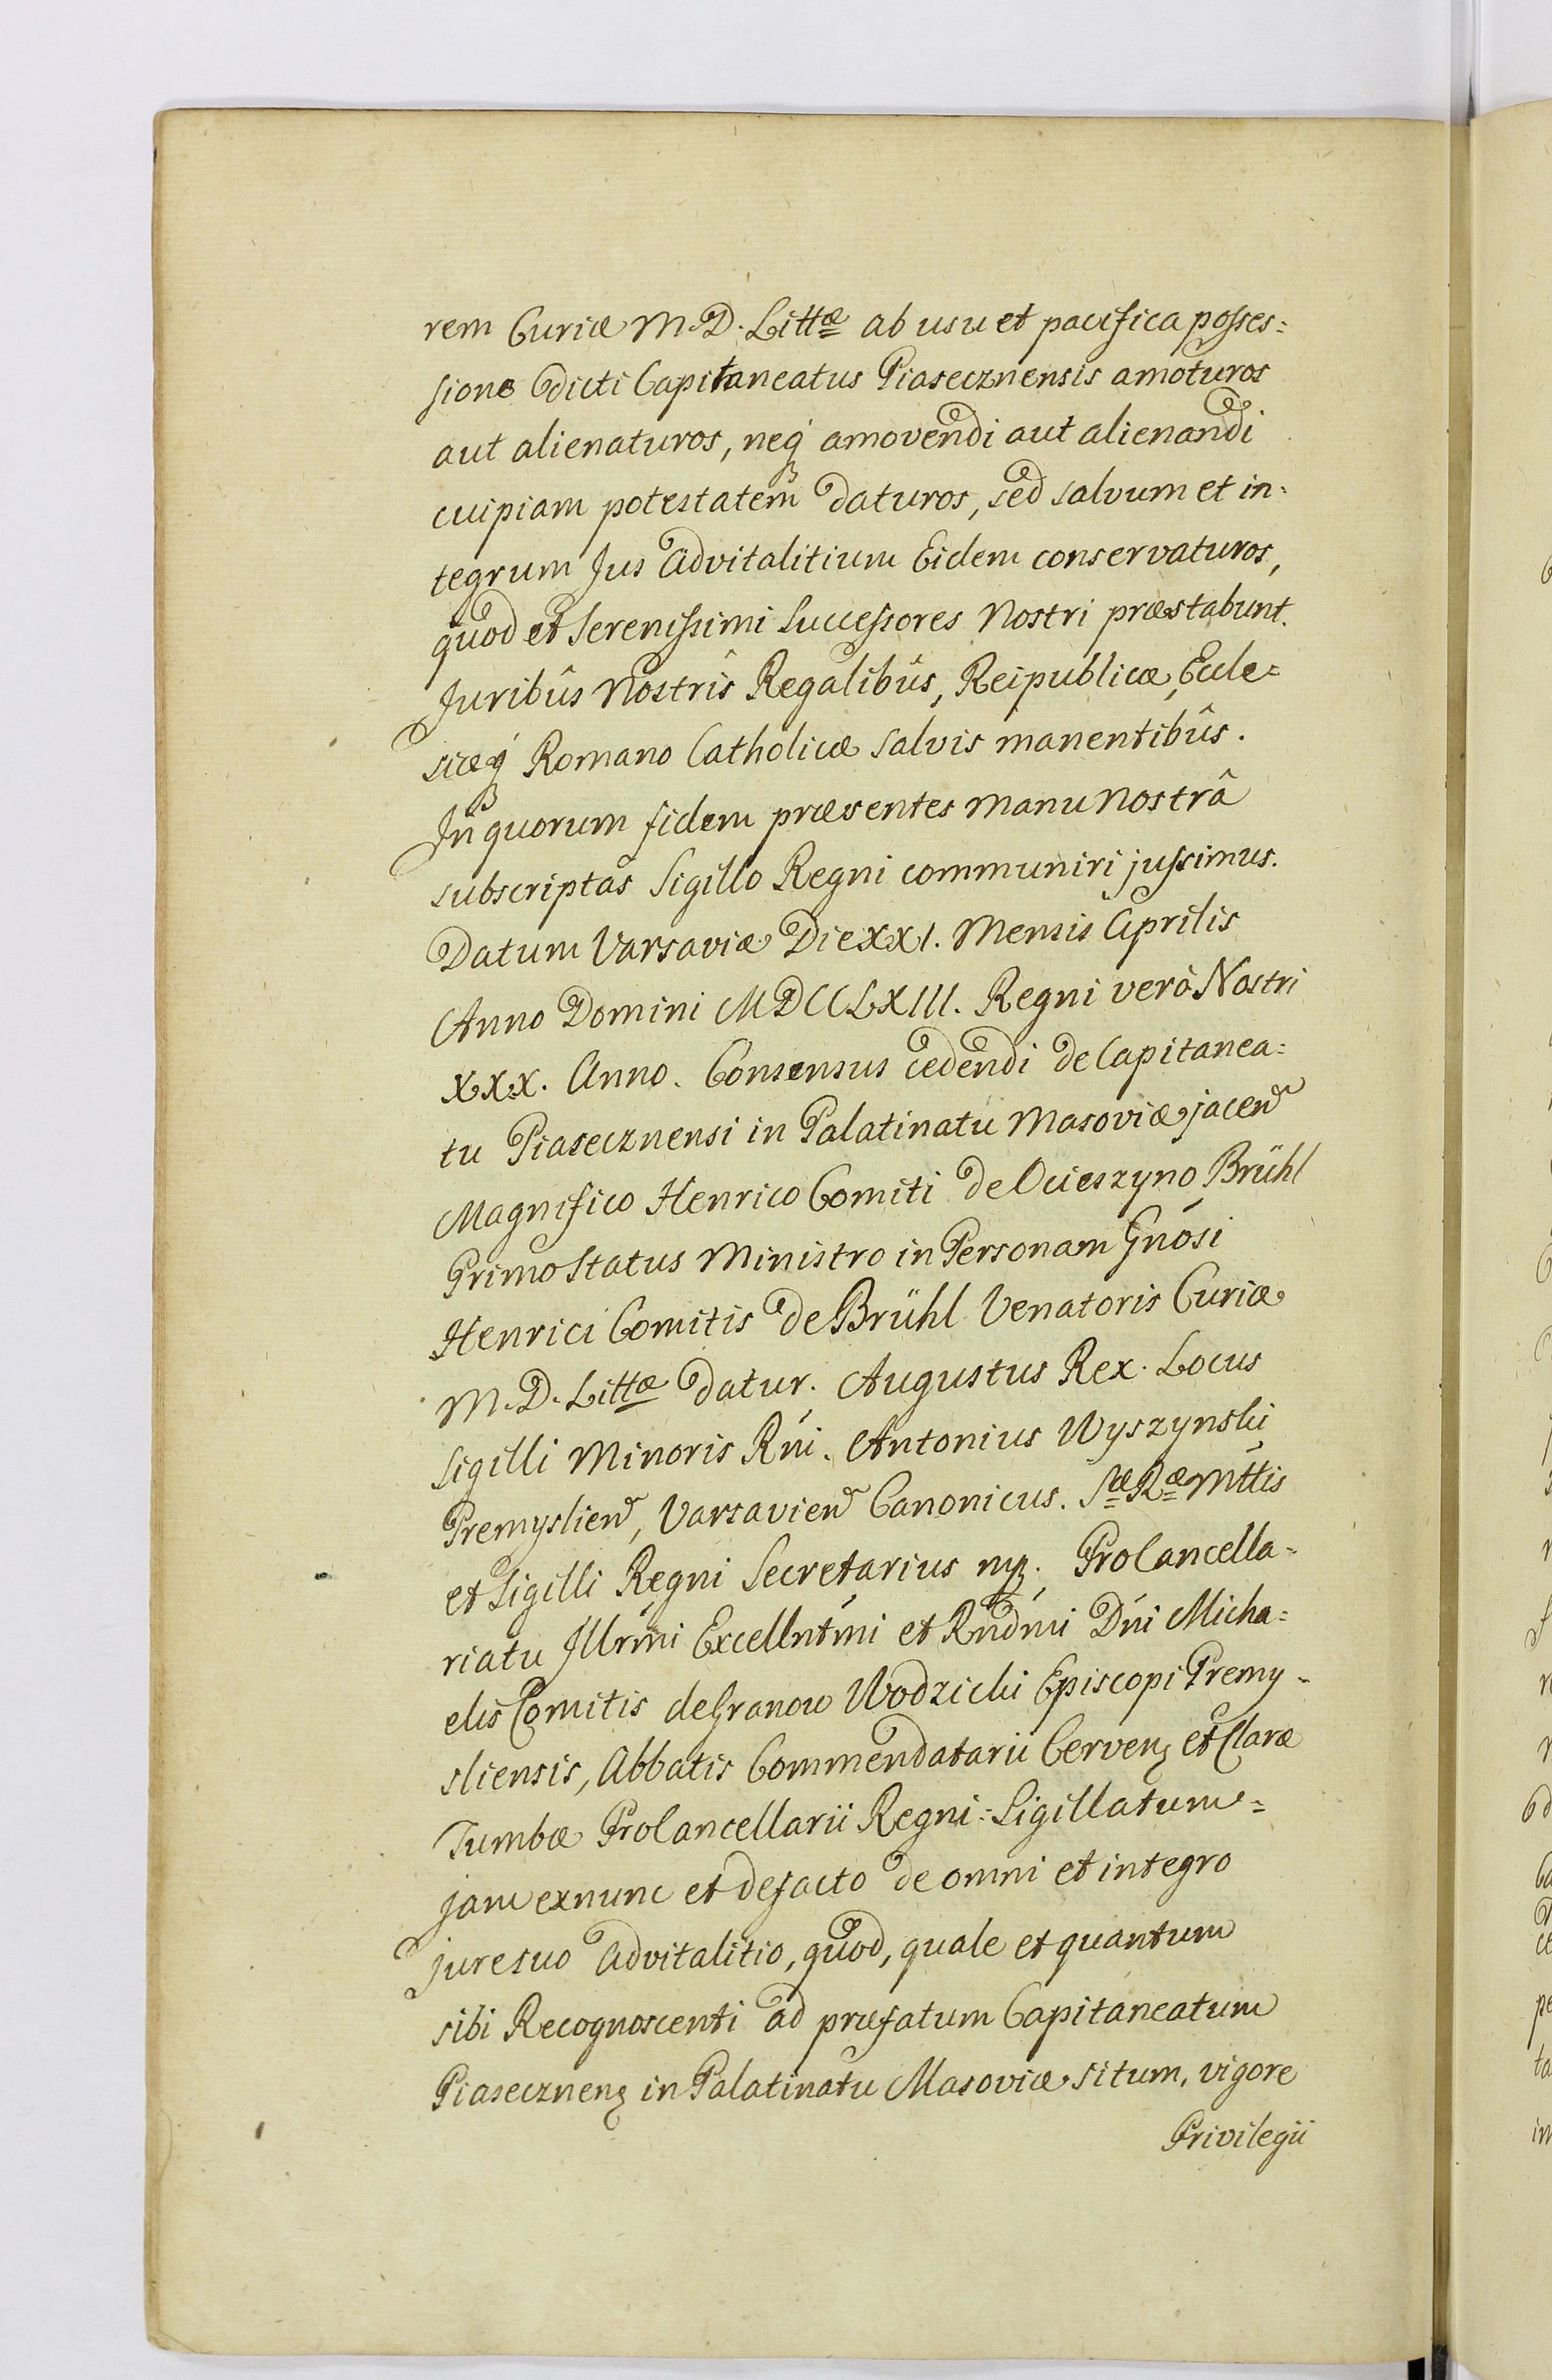 rem Curiæ M. D. Littæ ab usu et pacifica posses=
sione dicti Capitaneatus Piasecznensis amoturos
aut alienaturos, neq́ amovendi aut alienandi
cuipiam potestatem daturos, sed salvum et in=
tegrum Jus advitalitium Eidem conservaturos,
quod et Serenissimi Successores Nostri præstabunt.
Juribûs Nostrîs Regalibûs, Reipublicæ, Eccle=
siæq́ Romano Catholicæ salvis manentibûs.
In quorum fidem præsentes manu Nostrâ
subscriptas Sigillo Regni communiri jussimus.
Datum Varsaviæ Die XXI. Mensis Aprilis
Anno Domini MDCCLXIII. Regni verò Nostri
XXX. Anno. Consensus cedendi de Capitanea=
tu Piasecznensi in Palatinatu Masoviæ jacen̄
Magnifico Henrico Comiti de Ocieszyno Brühl
Primo Status Ministro in Personam Gnosi
Henrici Comitis de Brühl Venatoris Curiæ
M. D. Littæ datur. Augustus Rex. Locus
Sigilli Minoris Rni. Antonius Wyszynski
Premyslien̄, Varsavien̄ Canonicus. Sæ Ræ Mttis
et Sigilli Regni Secretarius mp. ProCancella=
riatu Illrmi Excellntmi et Rndmi Dni Micha=
elis Comitis de Granow Wodzicki Episcopi Premy=
sliensis, Abbatis Commendatarii Cerven: et Claræ
Tumbæ ProCancellarii Regni= Sigillatum=
jam exnunc et defacto de omni et integro
jure suo advitalitio, quod, quale et quantum
sibi Recognoscenti ad præfatum Capitaneatum
Piasecznen: in Palatinatu Masoviæ situm, vigore
Privilegii